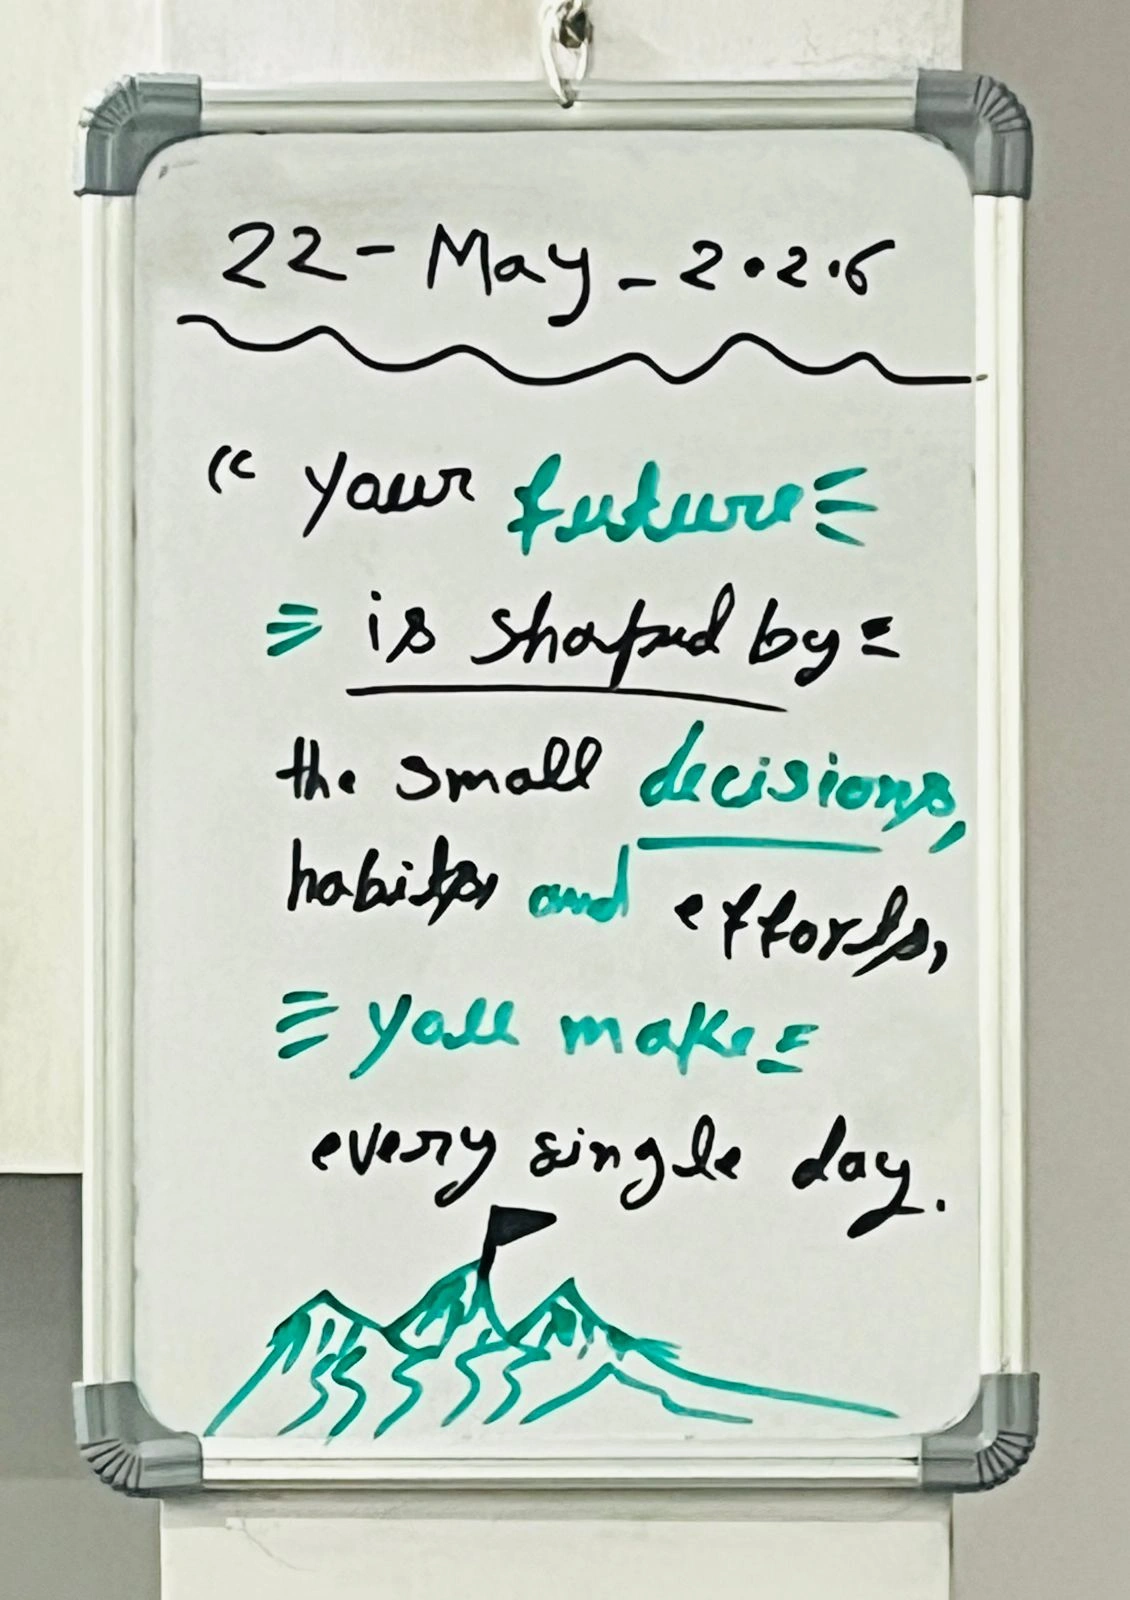 22 - May - 2026
“ your future
is shaped by
the small decisions,
habits, and efforts,
yall make
every single day.